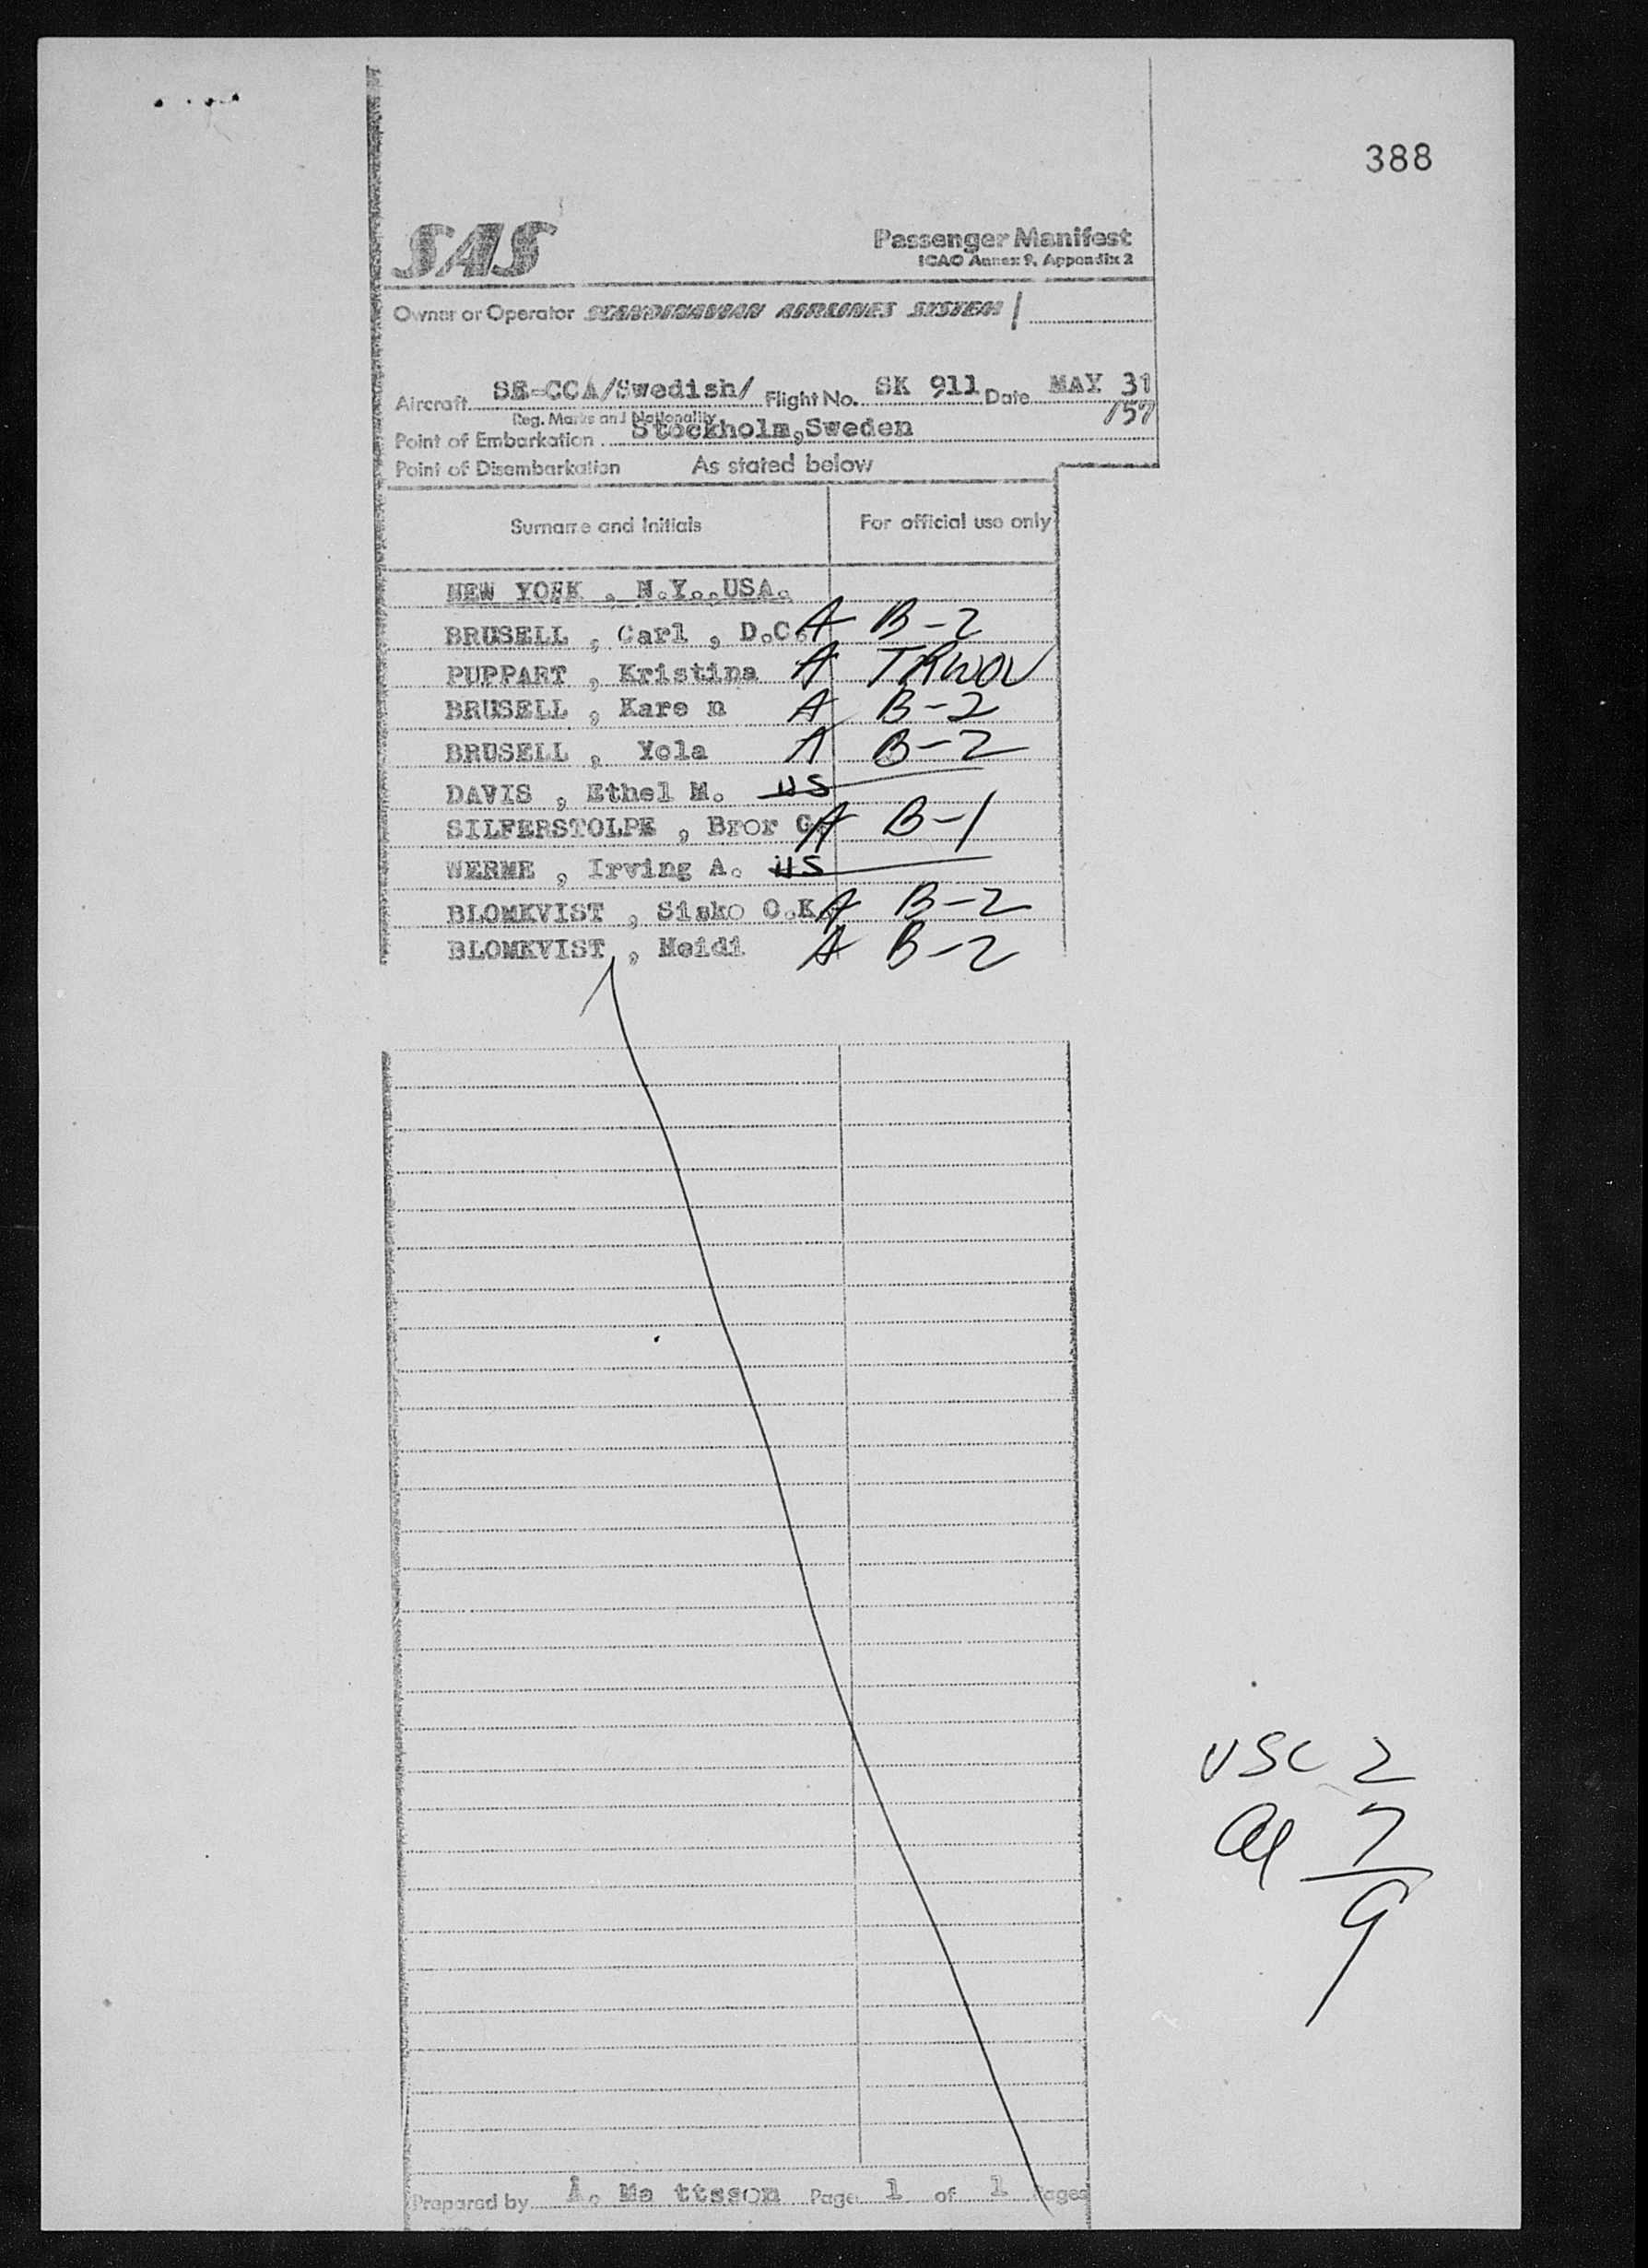 388
SAS
Passenger Manifest
ICAO Annex 9, Appendix 2
Owner or Operator SCANDINAVIAN AIRLINES SYSTEM
Aircraft SE-CCA/Swedish/ Flight No. SK 911 Date MAY 31
/57
Reg. Marks and Nationality
Point of Embarkation Stockholm,Sweden
Point of Disembarkation As stated below
Surname and Initials For official use only
NEW YORK , N.Y.,USA.
BRUSELL , Carl , D.C. A B-2
PUPPART , Kristina A TRWOV
BRUSELL , Kare n A B-2
BRUSELL , Yola A B-2
DAVIS , Ethel M. US
SILFERSTOLPE , Bror G. A B-1
WERME , Irving A. US
BLOMKVIST , Sisko O.K. A B-2
BLOMKVIST , Heidi A B-2
USC 2
al 7
9
Prepared by Å. Ma ttsson Page 1 of 1 Pages